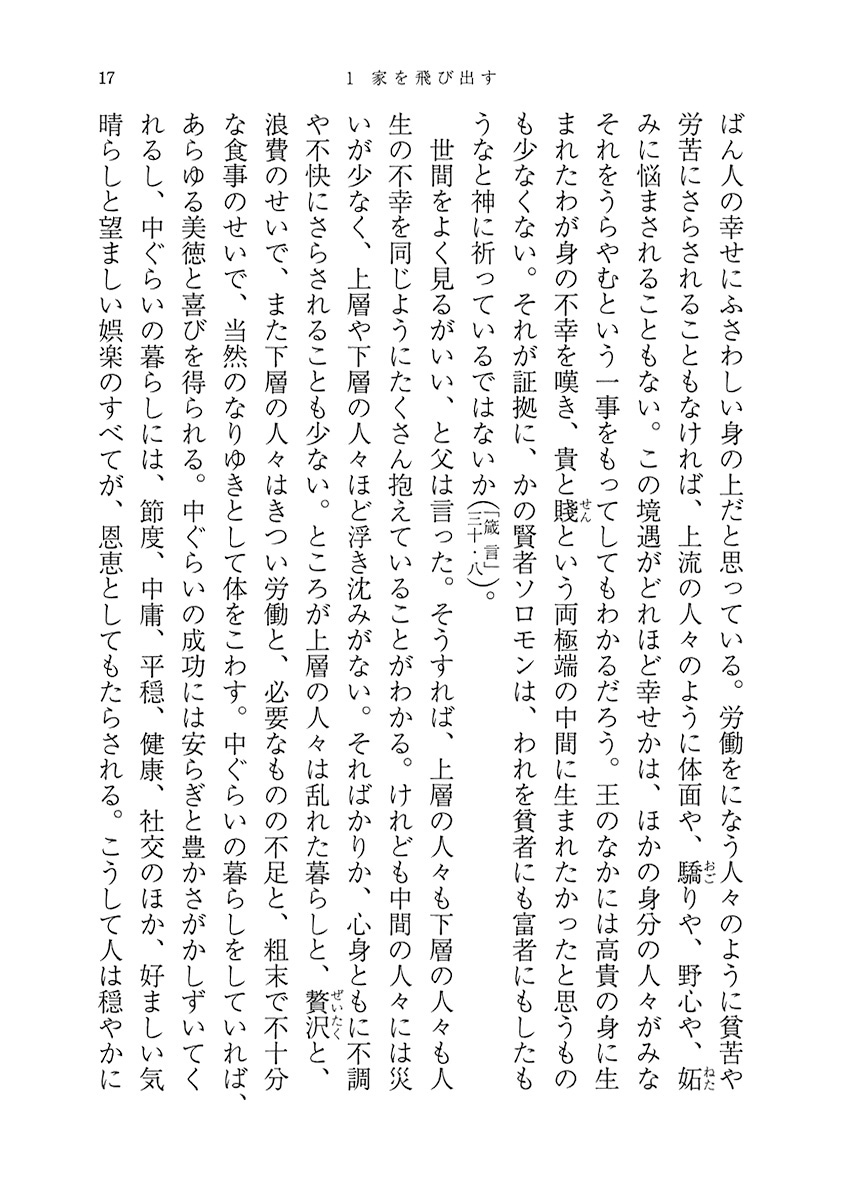 17
1 家を飛び出す
ばん人の幸せにふさわしい身の上だと思っている。労働をになう人々のように貧苦や
労苦にさらされることもなければ、上流の人々のように体面や、驕りや、野心や、妬
みに悩まされることもない。この境遇がどれほど幸せかは、ほかの身分の人々がみな
それをうらやむという一事をもってしてもわかるだろう。王のなかには高貴の身に生
まれたわが身の不幸を嘆き、貴と賤という両極端の中間に生まれたかったと思うもの
も少なくない。それが証拠に、かの賢者ソロモンは、われを貧者にも富者にもしたも
うなと神に祈っているではないか(「箴言」三十・八)。
世間をよく見るがいい、と父は言った。そうすれば、上層の人々も下層の人々も人
生の不幸を同じようにたくさん抱えていることがわかる。けれども中間の人々には災
いが少なく、上層や下層の人々ほど浮き沈みがない。そればかりか、心身ともに不調
や不快にさらされることも少ない。ところが上層の人々は乱れた暮らしと、贅沢と、
浪費のせいで、また下層の人々はきつい労働と、必要なものの不足と、粗末で不十分
な食事のせいで、当然のなりゆきとして体をこわす。中ぐらいの暮らしをしていれば、
あらゆる美徳と喜びを得られる。中ぐらいの成功には安らぎと豊かさがかしずいてく
れるし、中ぐらいの暮らしには、節度、中庸、平穏、健康、社交のほか、好ましい気
晴らしと望ましい娯楽のすべてが、恩恵としてもたらされる。こうして人は穏やかに